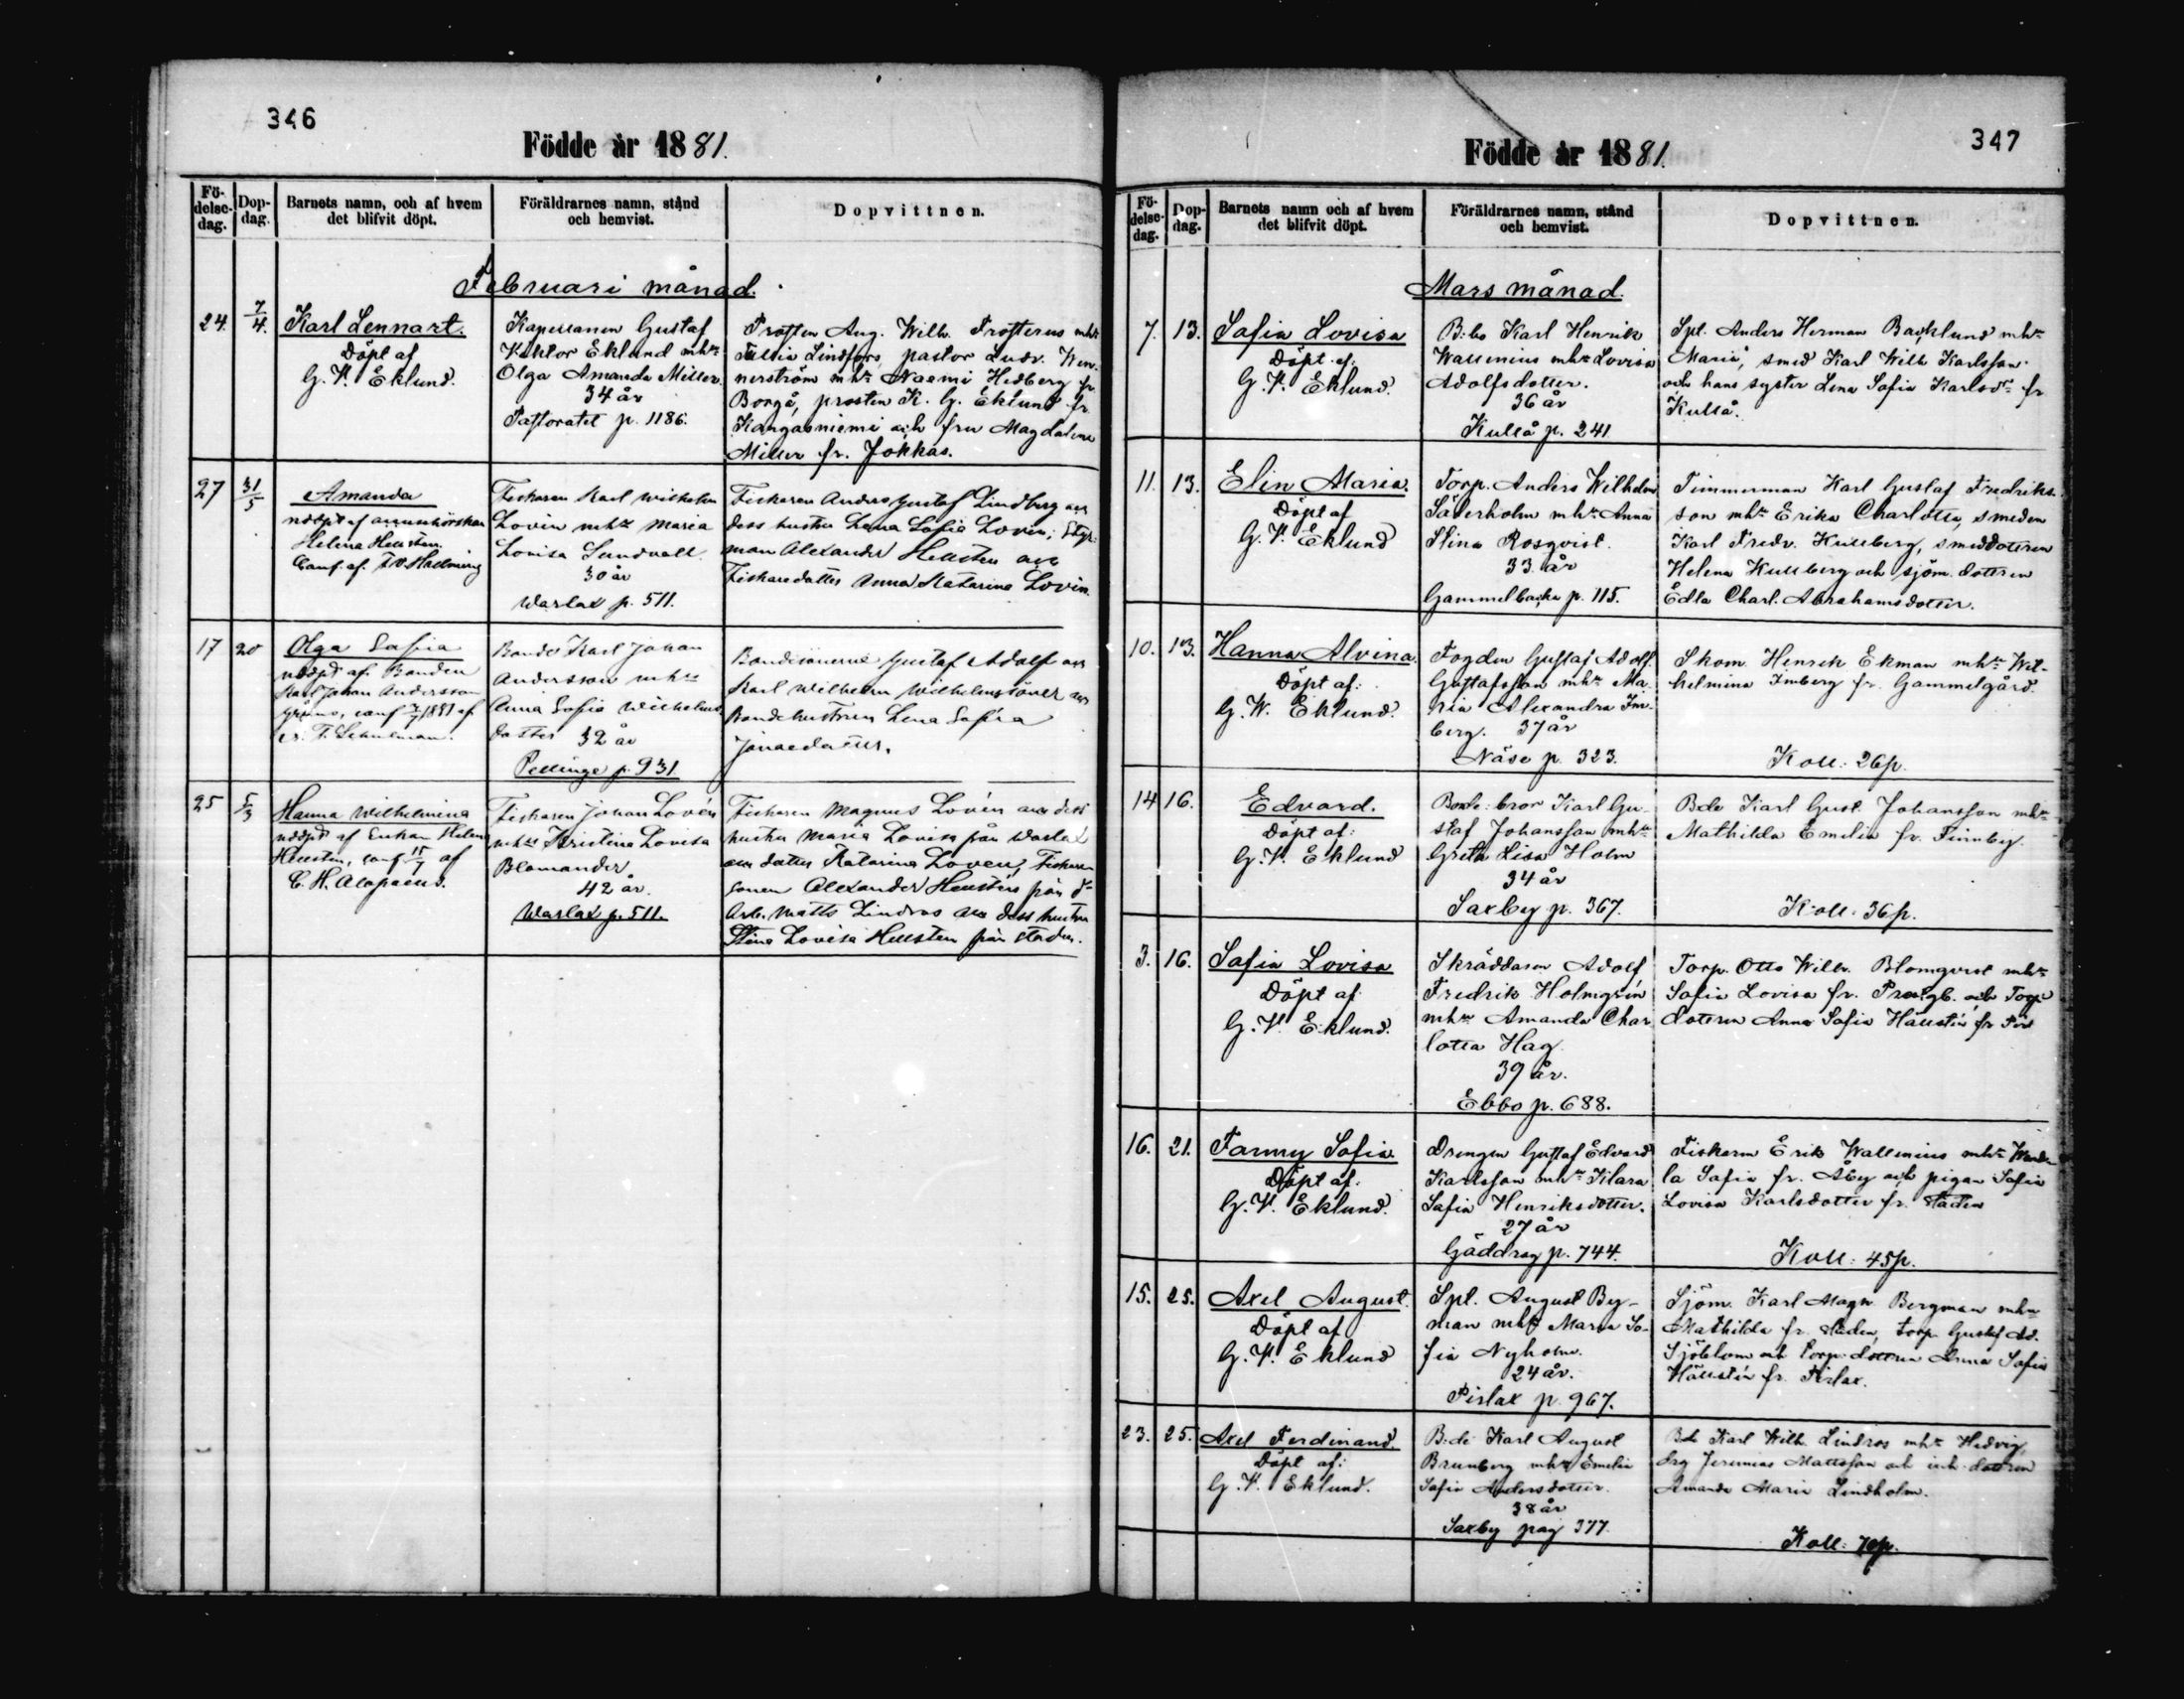 346
Födde år 1881.
Fö-
delse-
dag.
Dop-
dag.
Barnets namn, och af hvem
det blifvit döpt.
Föräldrarnes namn, stånd
och hemvist.
Dopvittnen.
Februari månad.
24. 7/4. Karl Lennart.
Döpt af
G. V. Eklund.
Kapellanen Gustaf
Viktor Eklund mhu
Olga Amanda Miller.
34 år
Pastoratet p. 1186.
Prosten Aug. Wilh. Frosterus mhu
Lindfors, pastor Ludv. Wen-
nerström mhu Naemi Hedberg fr.
Borgå, prosten K. G. Eklund fr.
Kangasniemi och fru Magdalena
Miller fr. Jokkas.
27 31/5 Amanda
nödöpt af
Helena Hellsten.
Conf. af
Fiskaren Karl Wilhelm
Lovin mhu Maria
Lovisa Sundvall
30 år
Warlax p. 511.
Fiskaren Anders Gustaf Lindberg och
dess hustru Lena Sofia Lovin,
man Alexander Hellsten och
Fiskaredotter Anna Katarina Lovin.
17 20 Olga Sofia
nödöpt af Bonden
Karl Johan Andersson
conf 1881 af
F. Schulman.
Bonde Karl Johan
Andersson mhu
Anna Sofia Wilhelms
dotter 32 år
Pellinge p. 931
Bondesönerne Gustaf Adolf och
Karl Wilhelm Wilhelmssöner och
Bondehustrun Lena Sofia
Jonaedotter.
25 5/3 Hanna Wilhelmina
nödöpt af Enkan Helena
Hellsten, conf 15/7 af
C. H. Alopaeus.
Fiskaren Johan Lovén
mhu Kristina Lovisa
Blomander
42 år.
Warlax p. 511.
Fiskaren Magnus Lovén och dess
hustru Maria Lovisa från Warlax
och dotter Katarina Loven, Fiskare
sonen Alexander Hellstén från d:o
Arb. Matts Lindros och dess hustru
Stina Lovisa Hellsten från staden.
347
Födde år 1881.
Fö-
delse-
dag.
Dop-
dag.
Barnets namn och af hvem
det blifvit döpt.
Föräldrarnes namn, stånd
och hemvist.
Dopvittnen.
Mars månad.
7. 13. Sofia Lovisa
Döpt af:
G. V. Eklund.
Karl Henrik
Wallenius mhu Lovisa
Adolfsdotter.
36 år
Kullå p. 241
Spl. Anders Herman Backlund mhu
Maria, smed Karl Wilh Karlsson
och hans syster Lena Sofia Karlsdr fr
Kullå.
11. 13. Elin Maria.
Döpt af
G. V. Eklund
Torp. Anders Wilhelm
Söderholm mhu Anna
Stina Rosqvist.
33 år
Gammelbacka p. 115.
Timmerman Karl Gustaf Fredriks-
son mhu Erika Charlotta, smeden
Karl Fredr. Kullberg, smeddottren
Helena Kullberg och sjöm. dottren
Edla Charl. Abrahamsdotter.
10. 13. Hanna Alvina.
Döpt af:
G. W. Eklund.
Fogden Gustaf Adolf.
Gustafsson mhu Ma-
ria Alexandra Im-
berg. 37 år
Näse p. 323.
Skom. Henrik Ekman mhu Wil-
helmina Imberg fr. Gammelgård.
Koll: 26p.
14 16. Edvard.
Döpt af:
G. V. Eklund
Bonde: bror Karl Gu-
staf Johansson mhu
Greta Lisa Holm
34 år
Saxby p. 367.
Bde Karl Gust. Johansson mhu
Mathilda Emelia fr. Finnby.
Koll: 36p.
3. 16. Sofia Lovisa
Döpt af:
G. V. Eklund.
Skräddaren Adolf
Fredrik Holmgrén
mhu Amanda Char
lotta Hag.
39 år.
Ebbo p. 688.
Torp. Otto Wilh. Blomqvist mhu
Sofia Lovisa fr. och Torp
dottren Anna Sofia Hällstén fr
16. 21. Fanny Sofia
Döpt af:
G. V. Eklund.
Drengen Gustaf Edvard
Karlsson mhu Klara
Sofia Henriksdotter.
27 år
Gäddrag p. 744.
Fiskaren Erik Wallenius mhu Wende-
la Sofia fr. Åby och pigan Sofia
Lovisa Karlsdotter fr. staden
Koll: 45p.
15. 25. Axel August.
Döpt af
G. V. Eklund
Spl. August By-
man mhu Maria So-
fia Nyholm.
24 år.
Pirlax p. 967.
Sjöm. Karl Magn. Bergman mhu
Mathilda fr. staden, torp Gustaf Ad.
Sjöblom och Torp. dottren Anna Sofia
Hällstén fr. Pirlax.
23. 25. Axel Ferdinand.
Döpt af:
G. V. Eklund.
B:de Karl August
Brunberg mhu Emelia
Sofia Andersdotter.
38 år
Saxby pag 377.
Bde Karl Wilh. Lindros mhu Hedvig,
drg Jeremias Mattsson och inh. dottren
Amanda Maria Lindholm.
Koll: 70p.